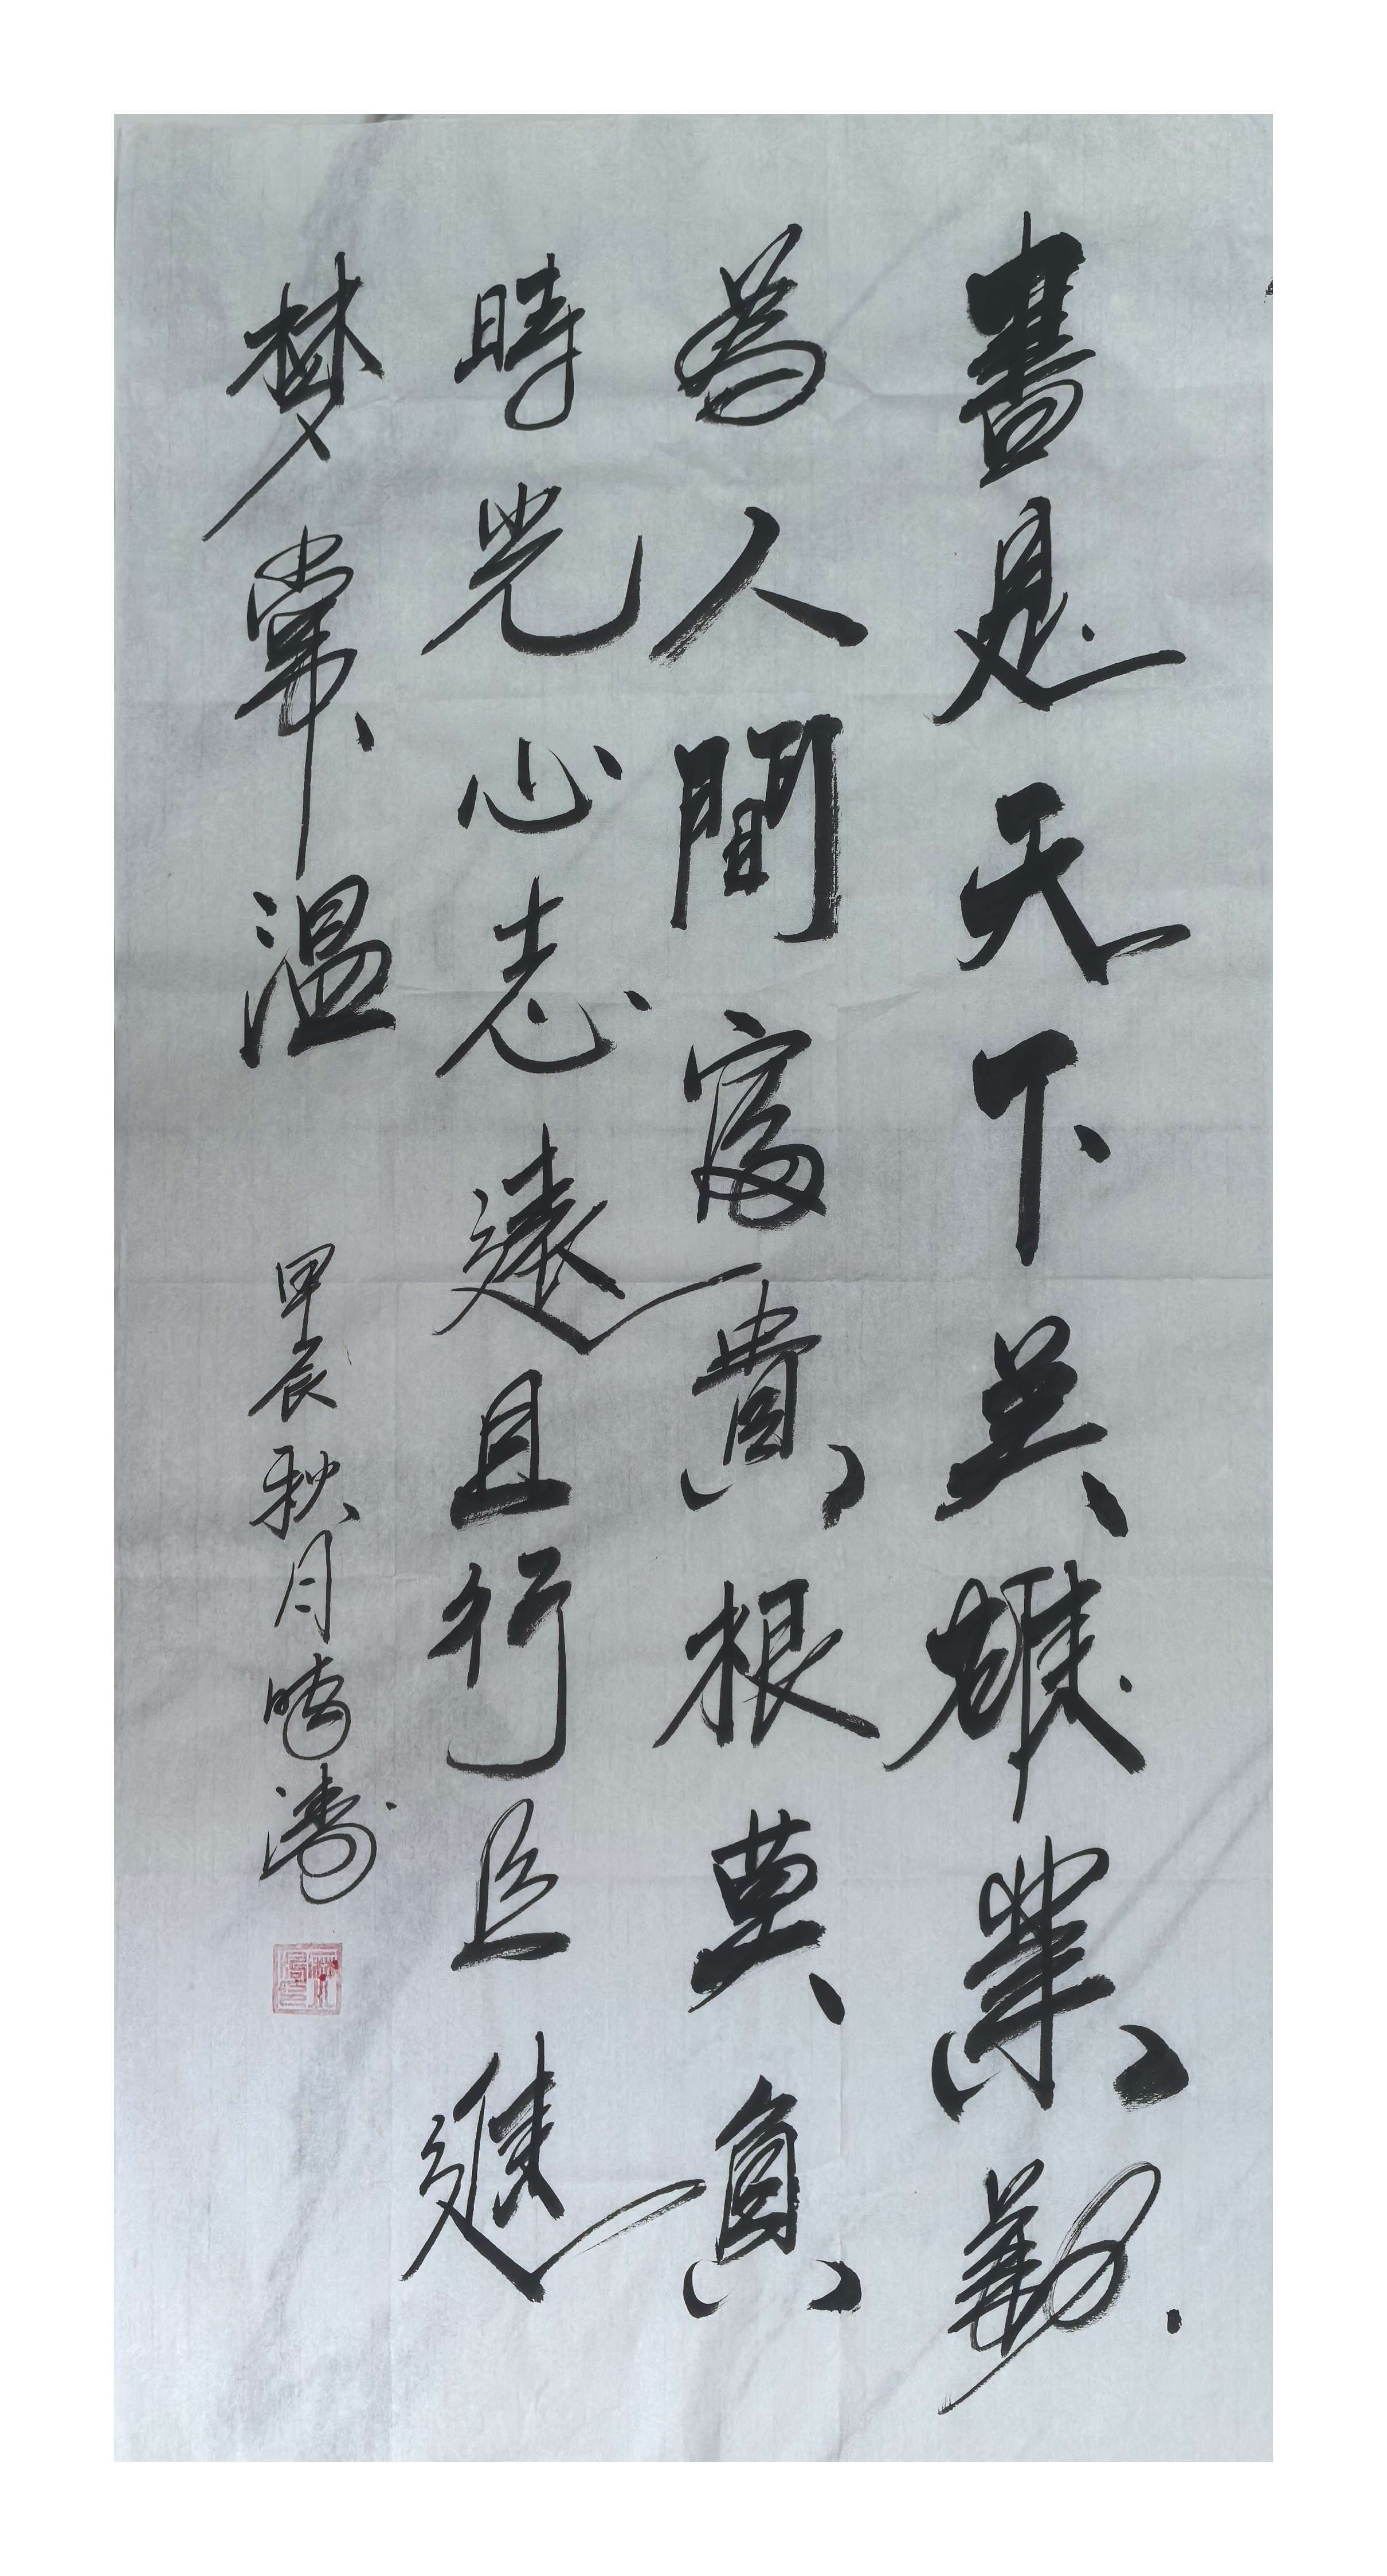 書是天下英雄業勤
為人間富貴根莫負
時光心志遠且行且進
夢常溫
甲辰秋月曉濤